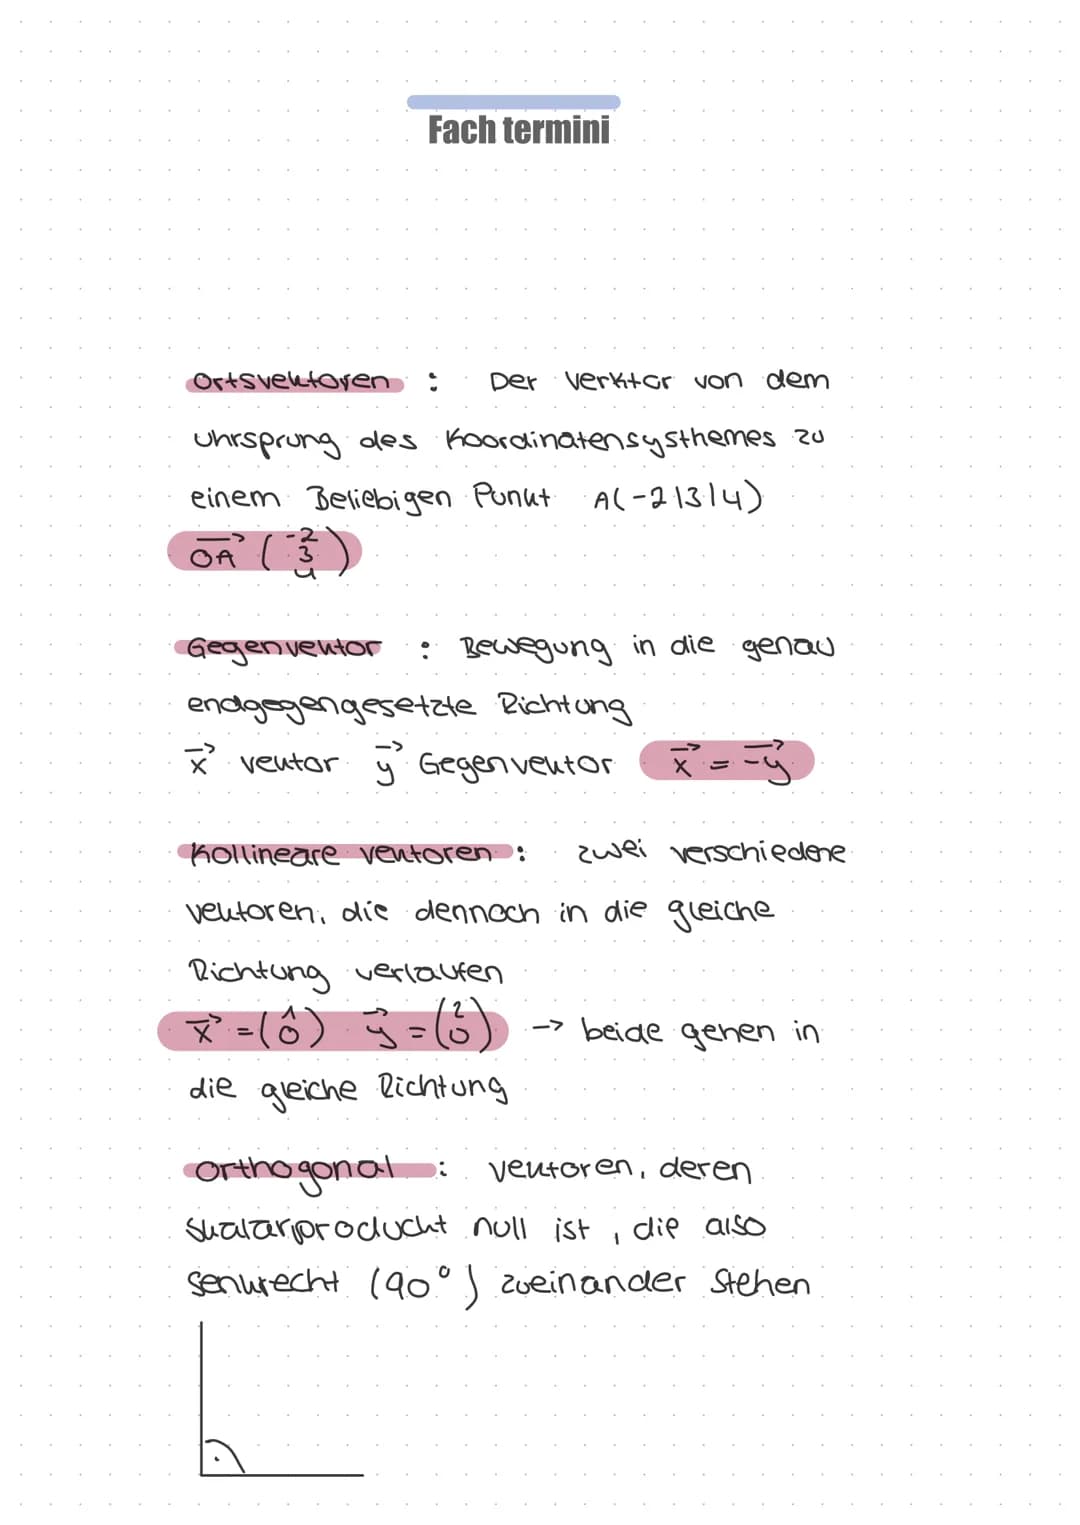 Fach termini
Ortsvektoren : Der Verktor von dem
Uhrsprung des Koordinatensysthemes zu
einem Beliebigen Punkt A(-2|3|4)
OA→ (-2 3 4)
Gegenvektor : Bewegung in die genau
endgegengesetzte Richtung
x→ vektor y→ Gegenvektor x→ = -y→
Kollineare vektoren : zwei verschiedene
vektoren, die dennoch in die gleiche
Richtung verlaufen
x→ = (1 0) y→ = (2 0) -> beide gehen in
die gleiche Richtung
Orthogonal : vektoren, deren
Skalarproduckt null ist, die also
senkrecht (90°) zueinander stehen